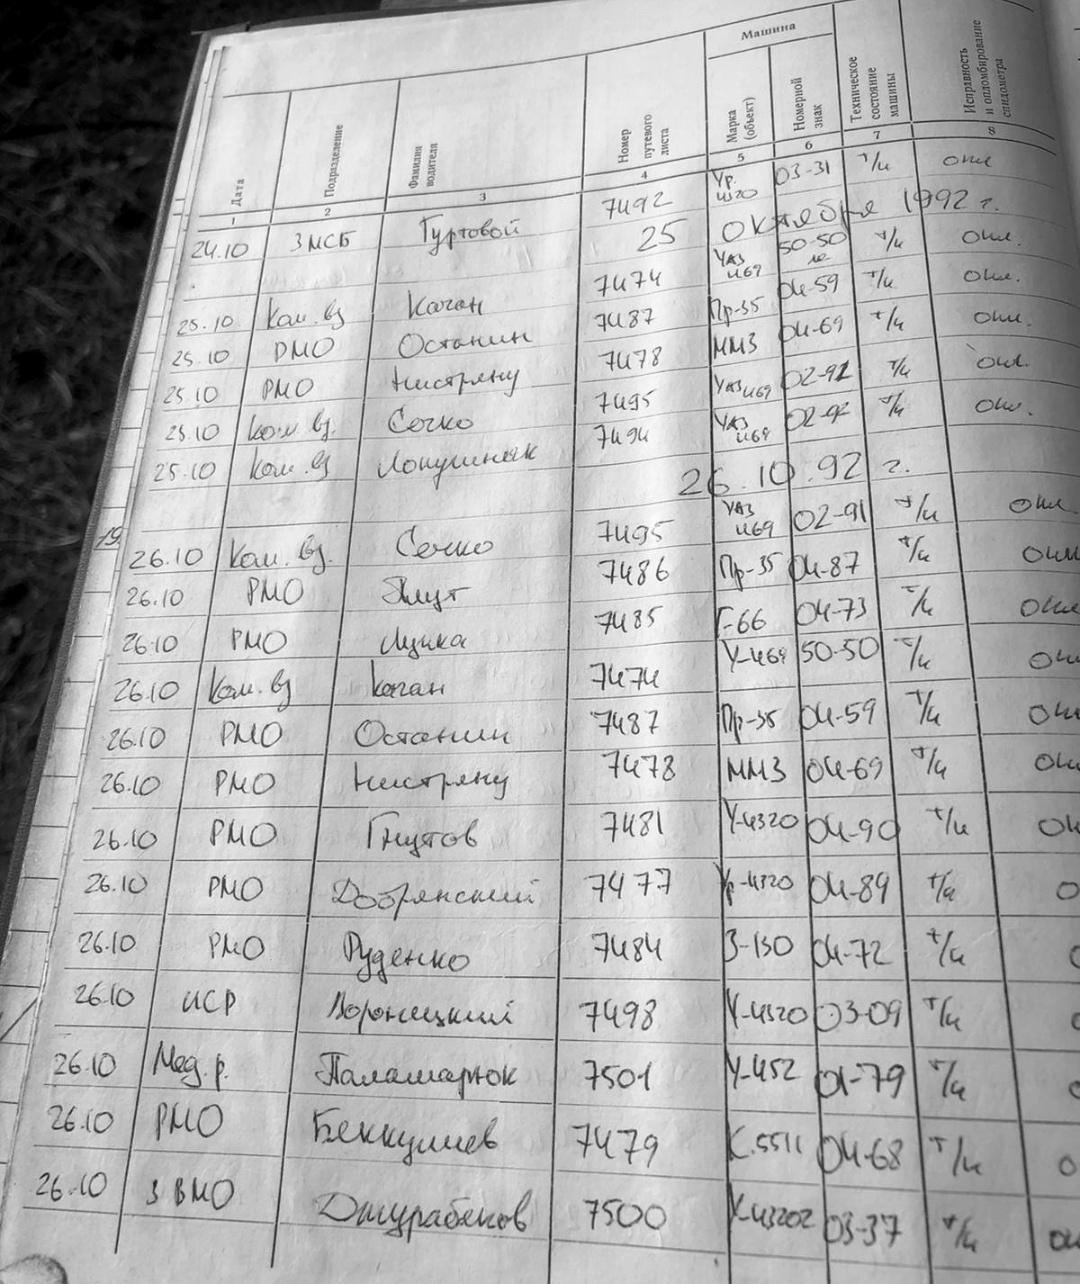 Машина
Дата
Подразделение
Фамилия водителя
Номер путевого листа
Марка (объект)
Номерной знак
Техническое состояние машины
Исправность и опломбирование спидометра
1 2 3 4 5 6 7 8
24.10 3 МСБ Гуртовой 7492 Ур. 4320 03-31 т/и опл
25 октября 1992 г.
25.10 Ком. вз Каган 7474 УАЗ 469 50-50 т/и опл.
25.10 РМО Останин 7487 Пр-35 04-59 т/и опл.
25.10 РМО Нистряну 7478 ММЗ 04-69 т/и опл.
25.10 Ком. вз. Сечко 7495 УАЗ 469 02-91 т/и опл.
25.10 Ком. вз Лопушняк 7494 УАЗ 469 02-92 т/и опл.
26.10.92 г.
19
26.10 Ком. вз. Сечко 7495 УАЗ 469 02-91 т/и опл
26.10 РМО 7486 Пр-35 04-87 т/и опл
26.10 РМО 7485 Г-66 04-73 т/и опл
26.10 Ком. вз Каган 7474 У-469 50-50 т/и
26.10 РМО Останин 7487 Пр-35 04-59 т/и
26.10 РМО Нистряну 7478 ММЗ 04-69 т/и
26.10 РМО Гнутов 7481 У-4320 04-90 т/и
26.10 РМО Добрянский 7477 Ур-4320 04-89 т/и
26.10 РМО Руденко 7484 З-130 04-72 т/и
26.10 ИСР Воронецкий 7498 У-4320 03-09 т/и
26.10 Мед. р. Паламарюк 7501 У-452 01-79 т/и
26.10 РМО Беккулиев 7479 К.5511 04-68 т/и
26.10 3 ВМО Джурабеков 7500 У-43202 03-37 т/и